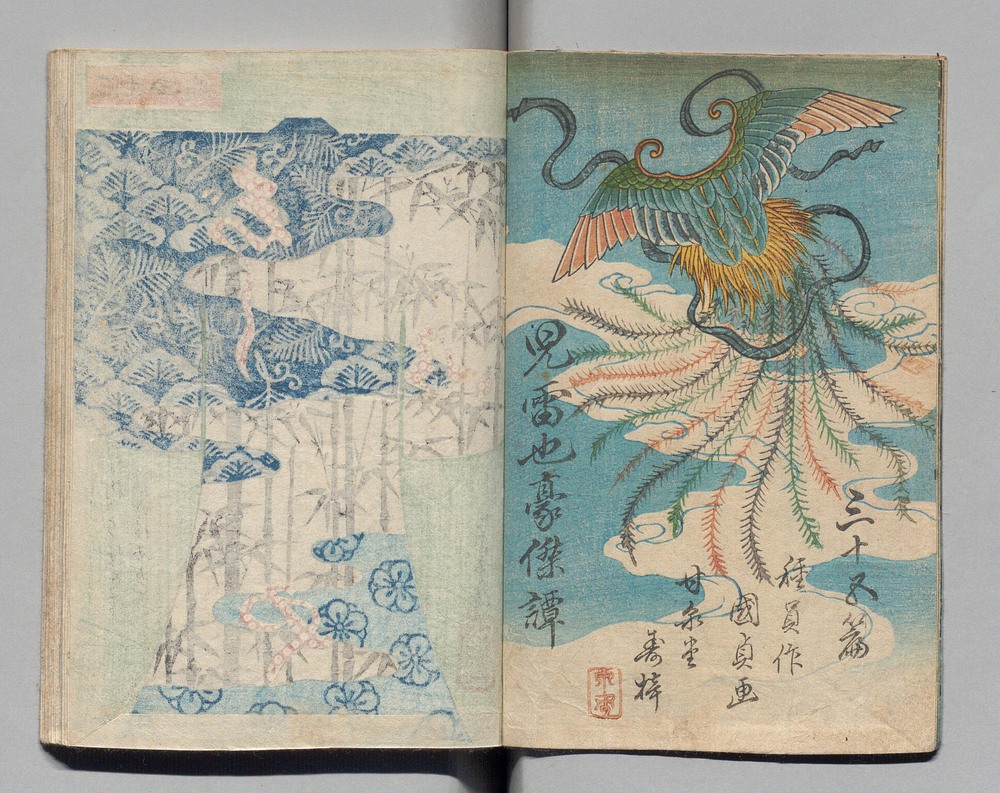 三十五篇
種員作
國貞画
甘泉堂
壽梓
児雷也豪傑譚
泉市